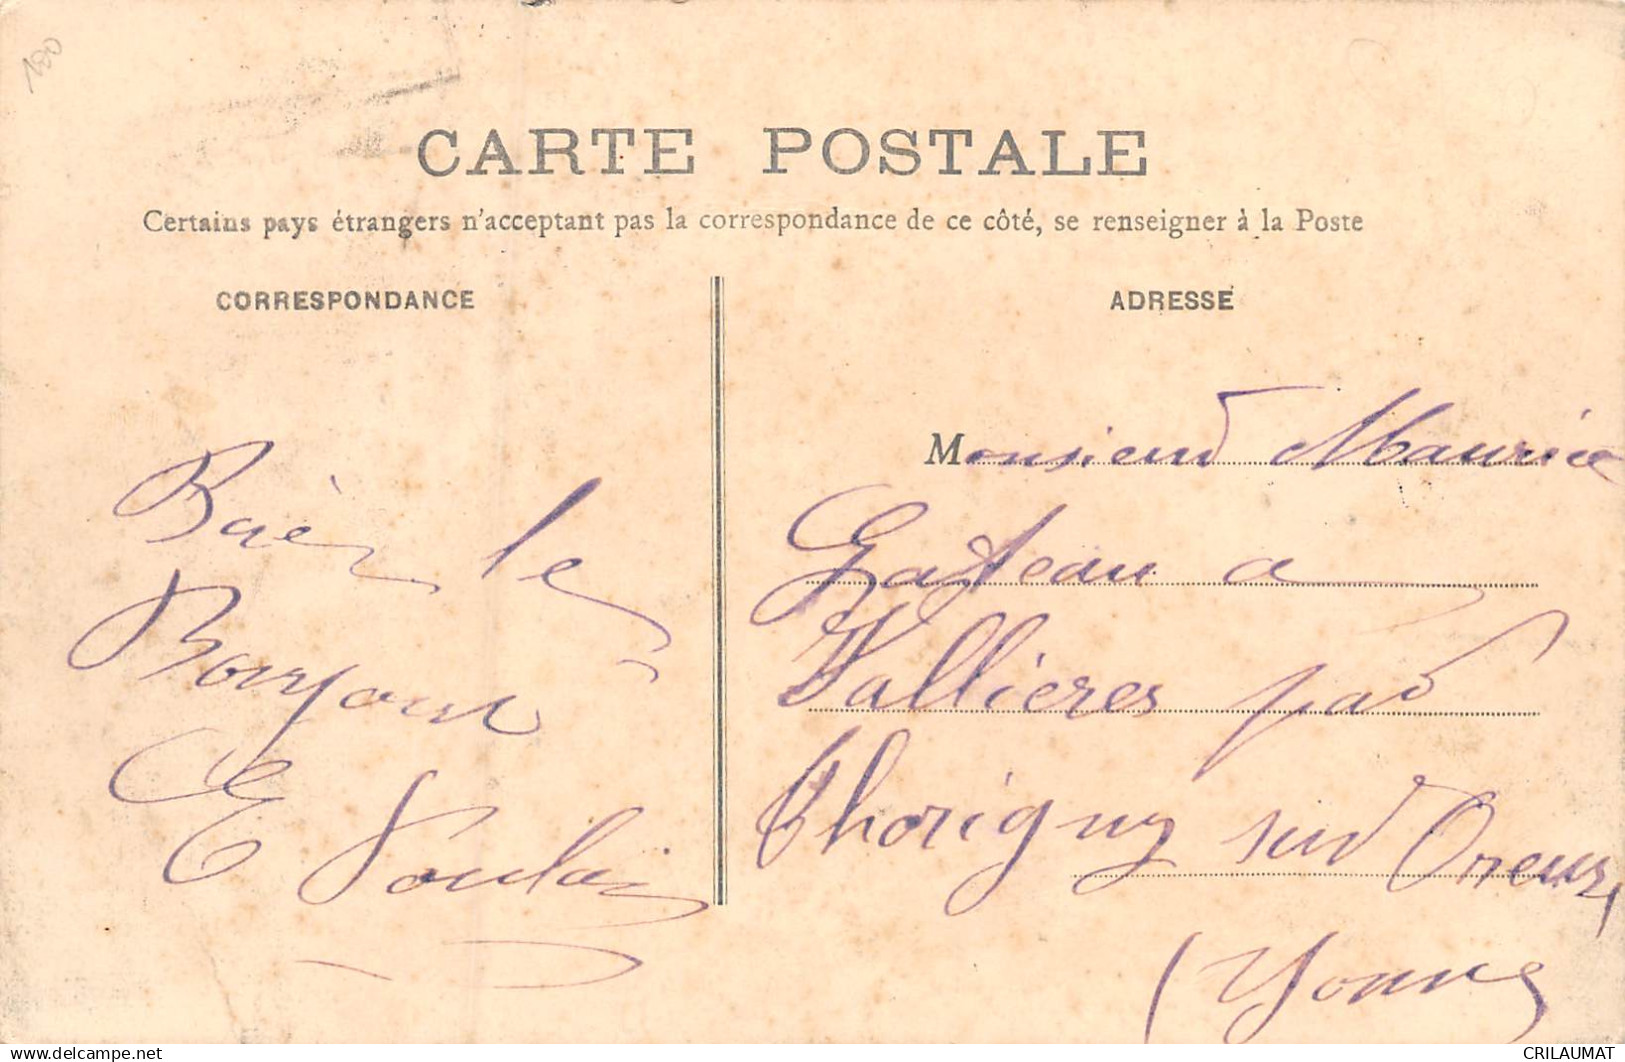 180
CARTE POSTALE
Certains pays étrangers n'acceptant pas la correspondance de ce côté, se renseigner à la Poste
CORRESPONDANCE
ADRESSE
le
Bonjour
E
Monsieur Maurice
Gasteau a
Vallieres par
Thorigny sur Oreuse
(Yonne
www.delcampe.net
CRILAUMAT